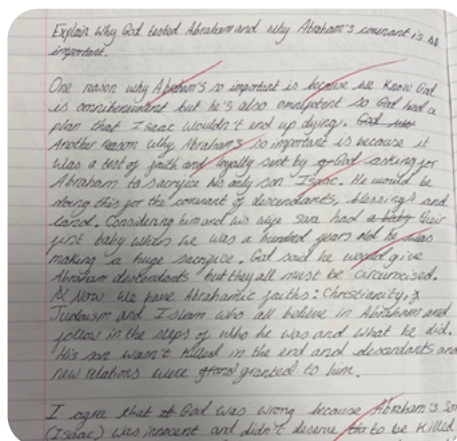 Explain why God tested Abraham and why Abraham's covenant is so
important.
One reason why Abraham's so important is because we know God
is omnibenevolent but he's also omnipotent so God had a
plan that Isaac wouldn't end up dying.
Another reason why Abraham's so important is because it
was a test of faith and loyalty sent by God asking for
Abraham to sacrifice his only son Isaac. He would be
doing this for the covenant of descendants, blessings and
land. Considering him and his wife Sara had their
first baby when he was a hundred years old he was
making a huge sacrifice. God said he would give
Abraham descendants but they all must be circumcised.
Now we have Abrahamic faiths: Christianity,
Judaism and Islam who all believe in Abraham and
follow in the steps of who he was and what he did.
His son wasn't killed in the end and descendants and
new relations were granted to him.
I agree that God was wrong because Abraham's Son
(Isaac) was innocent and didn't deserve to be killed